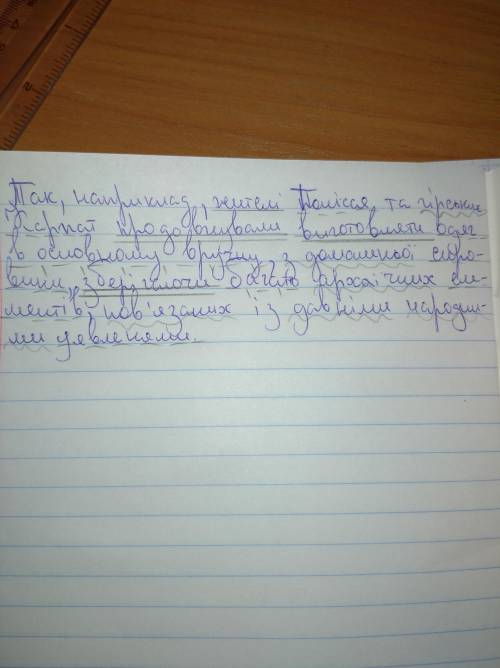 Так, наприклад, жителі Полісся, та гірських
Карпат продовжували виготовляти одяг
в основному вручну з домашньої сиро-
вини, зберігаючи багато архаїчних еле-
ментів, пов'язаних із давніми народни-
ми уявленями.